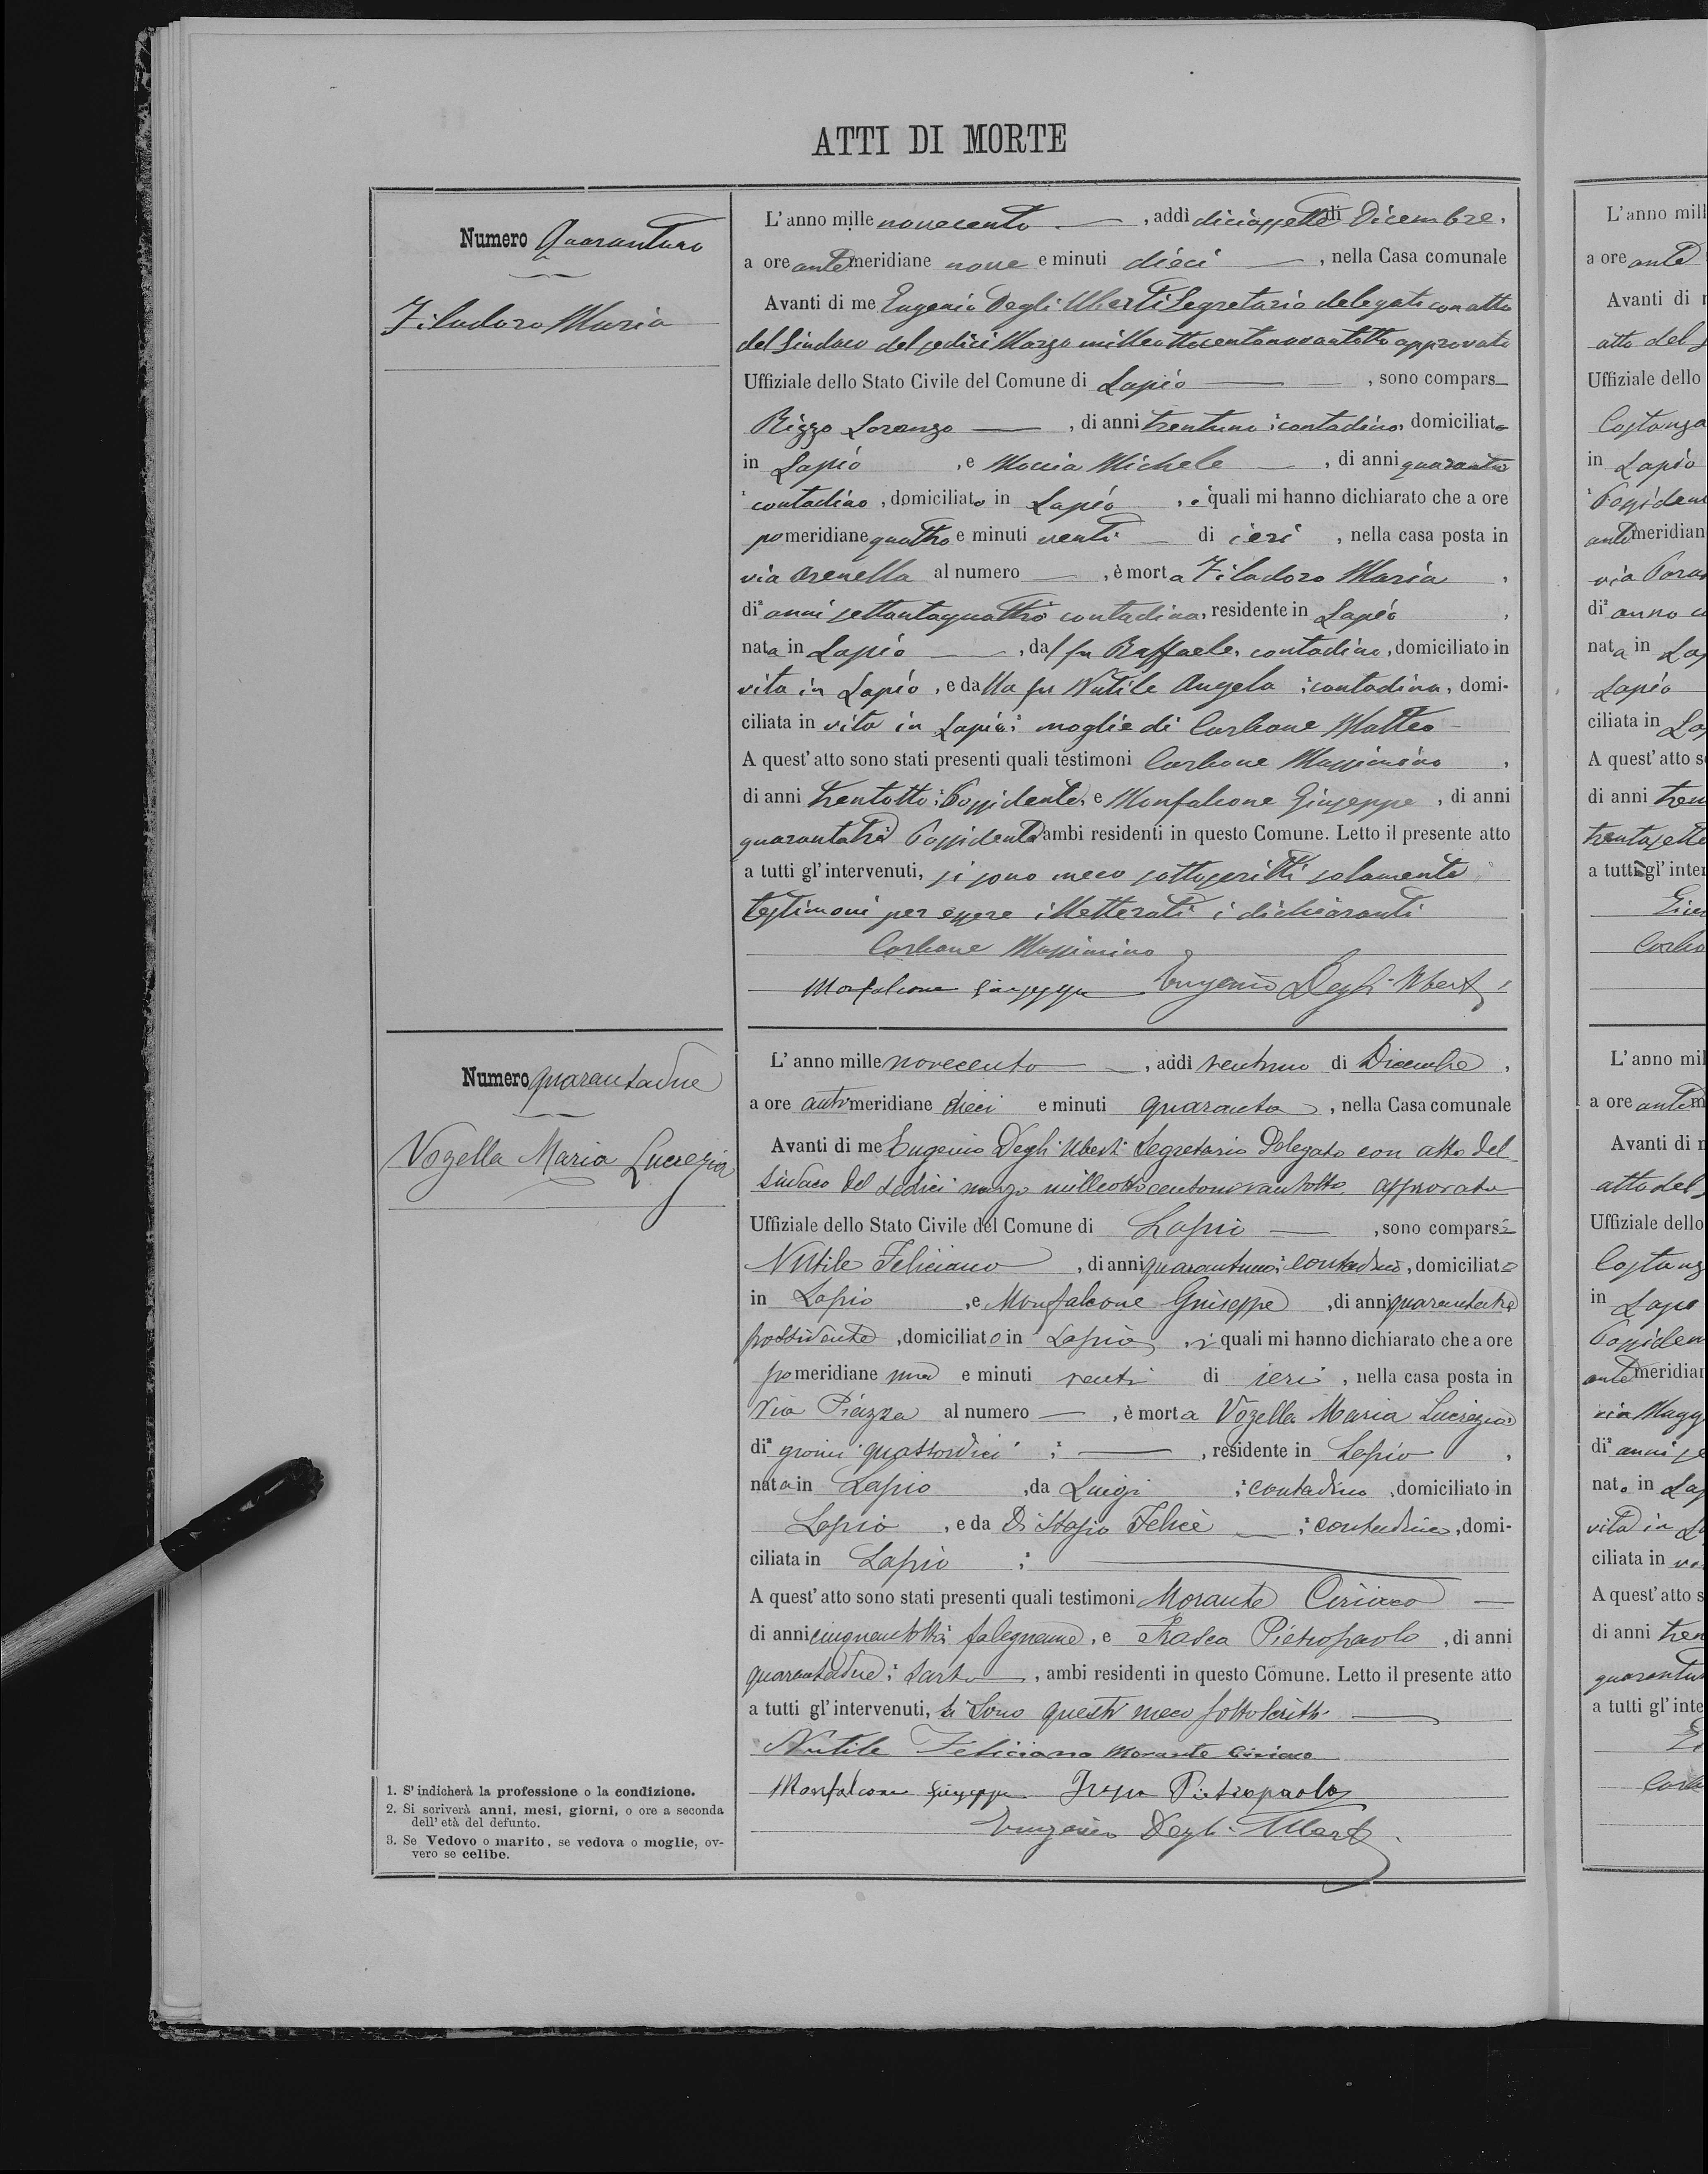 ATTI DI MORTE
Numero Quarantuno
Filadoro Maria
L'anno mille novecento, addì diciassette di Dicembre,
a ore antemeridiane nove e minuti dieci, nella Casa comunale
Avanti di me Eugenio Degli Uberti Segretario delegato con atto
del Sindaco del sedici Marzo milleottocentonovantotto approvato
Uffiziale dello Stato Civile del Comune di Lapio, sono compars
Rizzo Lorenzo, di anni trentuno, contadino, domiciliato
in Lapio, e Moccia Michele, di anni quaranta
contadino, domiciliato in Lapio, i quali mi hanno dichiarato che a ore
pomeridiane quattro e minuti venti di ieri, nella casa posta in
via Arenella al numero, è morta Filadoro Maria,
di anni settantaquattro contadina, residente in Lapio,
nata in Lapio, dal fu Raffaele, contadino, domiciliato in
vita in Lapio, e dalla fu Nutile Angela, contadina, domi-
ciliata in vita in Lapio; moglie di Carbone Matteo
A quest'atto sono stati presenti quali testimoni Carbone Massimino,
di anni trentotto, Possidente, e Monfalcone Giuseppe, di anni
quarantatre Possidente ambi residenti in questo Comune. Letto il presente atto
a tutti gl'intervenuti, si sono meco sottoscritti solamente
testimoni per essere illetterati i dichiaranti
Carbone Massimino
Monfalcone Giuseppe Eugenio Degli Uberti
Numero quarantadue
Vozella Maria Lucrezia
L'anno mille novecento, addì ventuno di Dicembre,
a ore antimeridiane dieci e minuti quaranta, nella Casa comunale
Avanti di me Eugenio Degli Uberti Segretario Delegato con atto del
Sindaco del sedici marzo milleottocentonovantotto, approvato
Uffiziale dello Stato Civile del Comune di Lapio, sono comparsi
Nutile Feliciano, di anni quarantuno, contadino, domiciliato
in Lapio, e Monfalcone Giuseppe, di anni quarantatre
possidente, domiciliato in Lapio, i quali mi hanno dichiarato che a ore
pomeridiane una e minuti venti di ieri, nella casa posta in
Via Piazza al numero, è morta Vozella Maria Lucrezia
di giorni quattordici, residente in Lapio,
nata in Lapio, da Luigi, contadino, domiciliato in
Lapio, e da Di Stasio Felice, contadina, domi-
ciliata in Lapio
A quest'atto sono stati presenti quali testimoni Morante Ciriaco
di anni cinquantotto falegname, e Frasca Pietropaolo, di anni
quarantadue, Sarto, ambi residenti in questo Comune. Letto il presente atto
a tutti gl'intervenuti, si sono questi meco sottoscritti
Nutile Feliciano Morante Ciriaco
Monfalcone Giuseppe Frasca Pietropaolo
Eugenio Degli Uberti
1. S'indicherà la professione o la condizione.
2. Si scriverà anni, mesi, giorni, o ore a seconda
dell'età del defunto.
3. Se Vedovo o marito, se vedova o moglie, ov-
vero se celibe.
L'anno mill
a ore ante
Avanti di
atto del
Uffiziale dello
Costanza
in Lapio
antimeridian
via
di anno
nata in
Lapio
ciliata in
A quest'atto s
di anni
trentasette
a tutti gl'inter
L'anno mil
a ore ante
Avanti di
atto del
Uffiziale dello
in
antemeridian
via
di anni
nat in
vita in
ciliata in
A quest'atto s
di anni
a tutti gl'inte